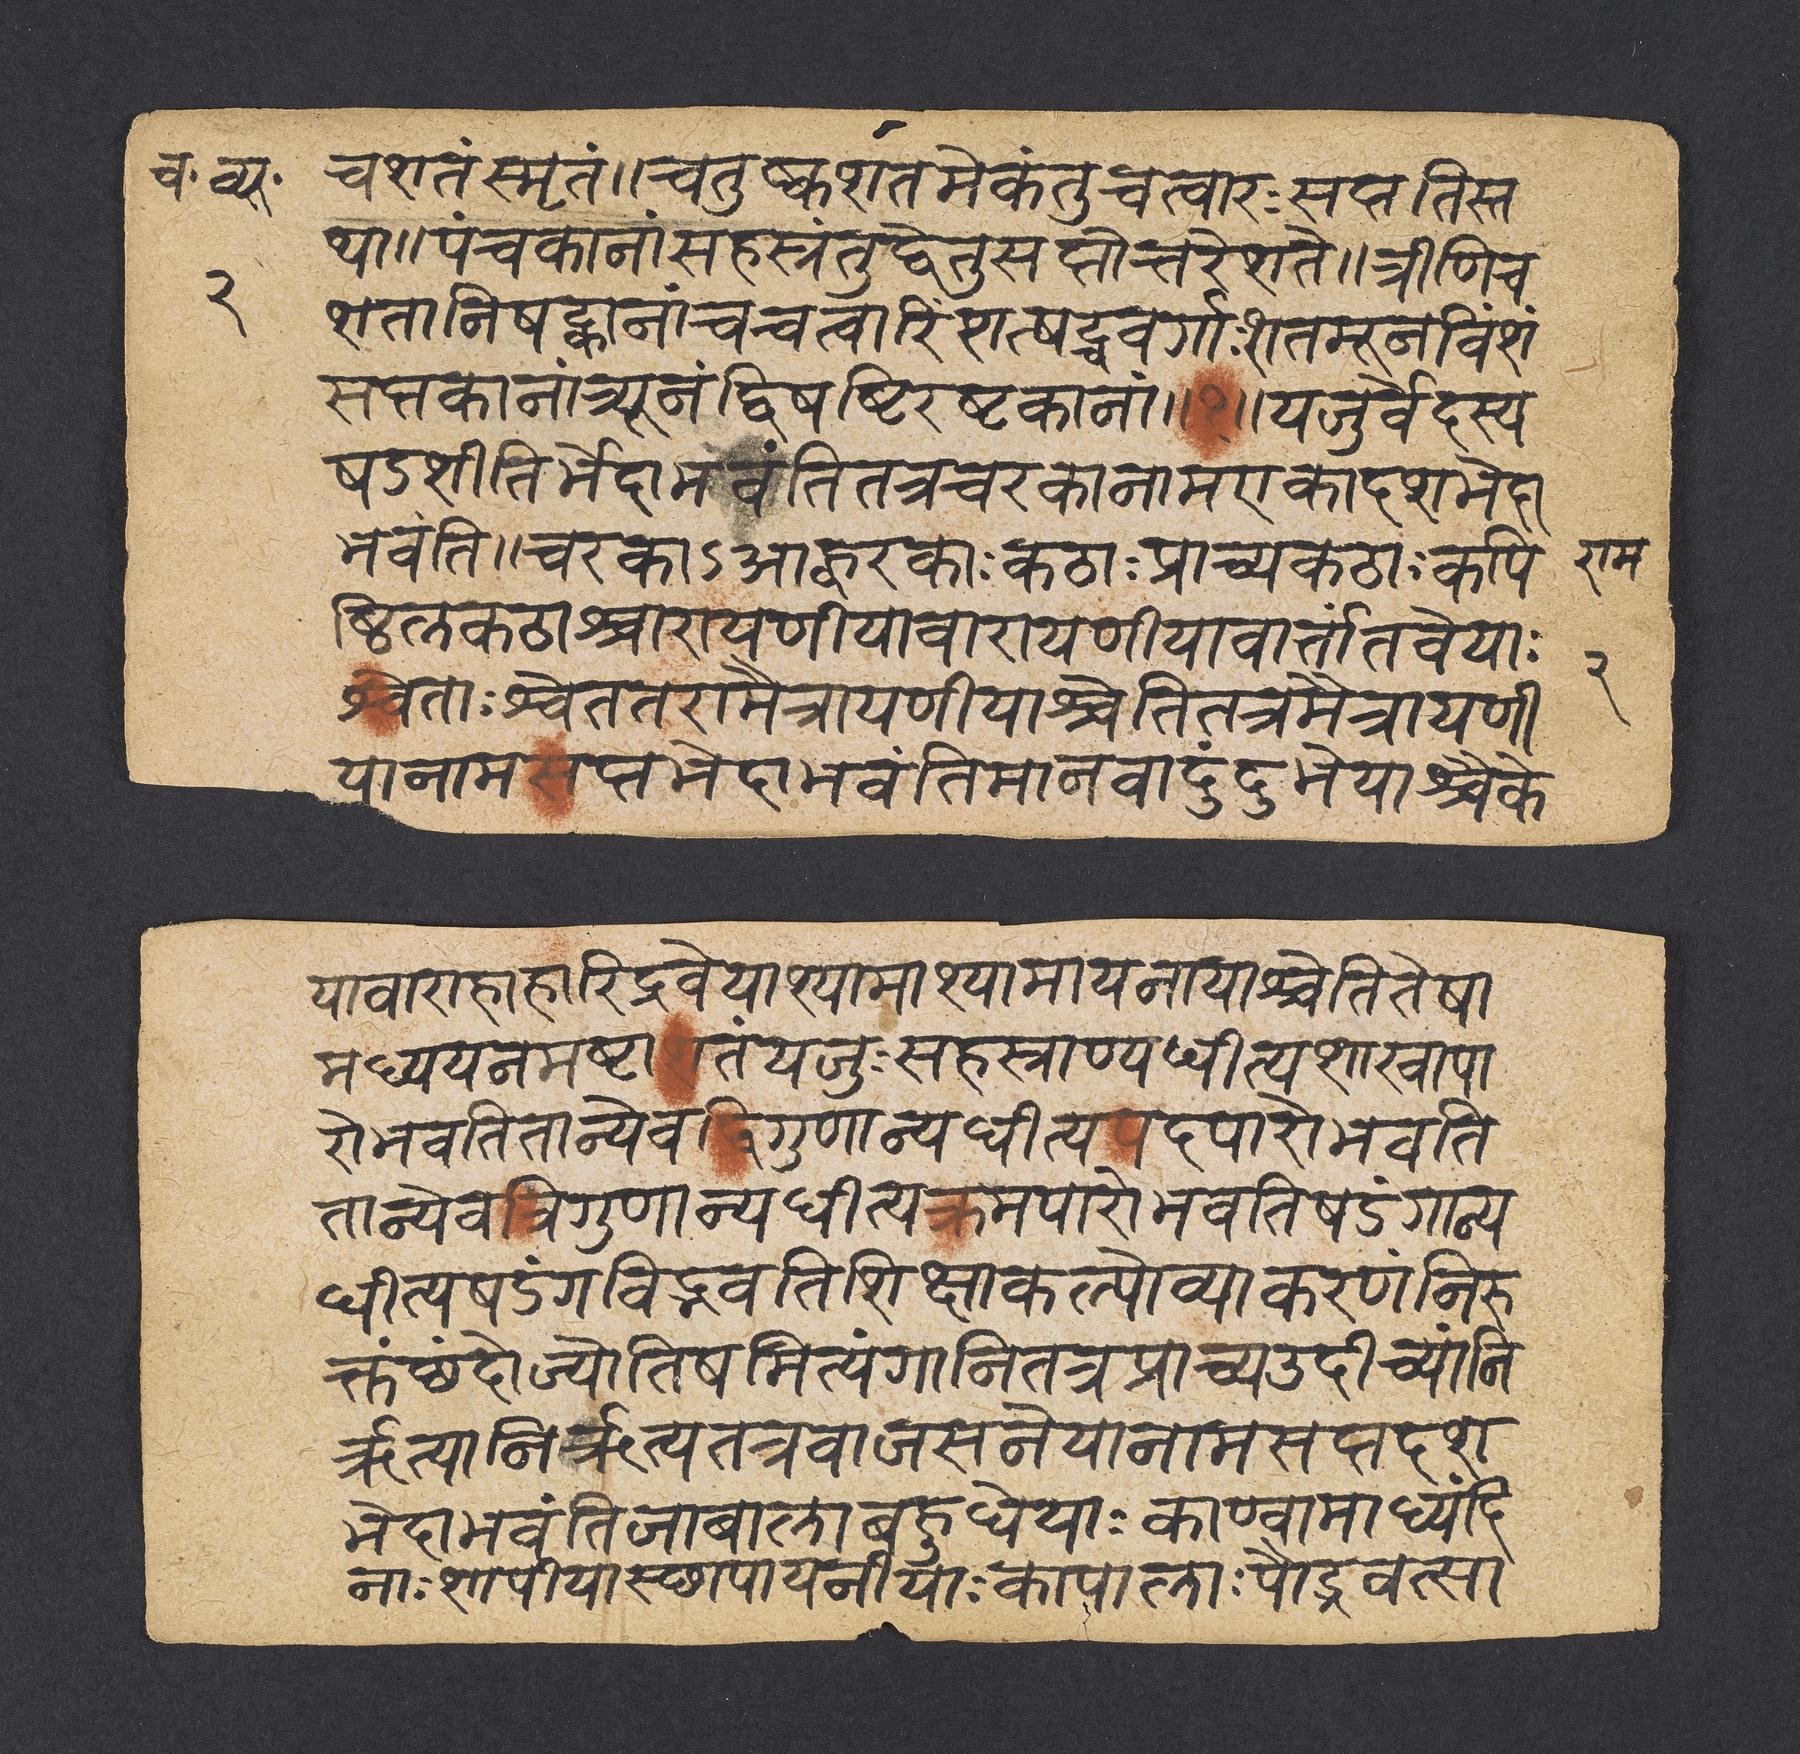 च॰ व्यू॰
२
चशतंस्मृतं॥चतुष्कशतमेकंतुचत्वारःसप्ततिस्त
था॥पंचकानांसहस्त्रंतुद्वेतुसप्तोत्तरेशते॥त्रीणिच
शतानिषट्कानांचचत्वारिंशत्षट्चवर्गाःशतमूनविंशं
सप्तकानांत्र्यूनंद्विषष्टिरष्टकानां॥१॥यजुर्वेदस्य
षडशीतिर्भेदाभवंतितत्रचरकानामएकादशभेदा
भवंति॥चरकाऽआह्वरकाःकठाःप्राच्यकठाःकपि
राम
ष्ठिलकठाश्चारायणीयावारायणीयावार्त्तांतवेयाः
२
श्वेताःश्वेततरामैत्रायणीयाश्चेतितत्रमैत्रायणी
यानामसप्तभेदाभवंतिमानवादुंदुभेयाश्चैके
यावाराहाहारिद्रवेयाश्यामाश्यामायनायाश्चेतितेषा
मध्ययनमष्टाशतंयजुःसहस्त्राण्यधीत्यशाखापा
रोभवतितान्येवद्विगुणान्यधीत्यपदपारोभवति
तान्येवत्रिगुणान्यधीत्यक्रमपारोभवतिषडंगान्य
धीत्यषडंगविद्भवतिशिक्षाकल्पोव्याकरणंनिरु
क्तंछंदोज्योतिषमित्यंगानितत्रप्राच्यउदीच्यांनि
र्ऋत्यानिर्ऋत्यतत्रवाजसनेयानामसप्तदश
भेदाभवंतिजाबालाबहुधेयाःकाण्वामाध्यंदि
नाःशापीयास्छापायनीयाःकापालाःपौंड्रवत्सा